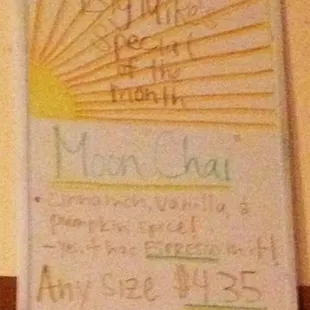 Big Mike's
Special
of the
month
Moon Chai
• Cinnamon, Vanilla, &
pumpkin spice!
- yes it has Espresso in it!
Any Size $4.35